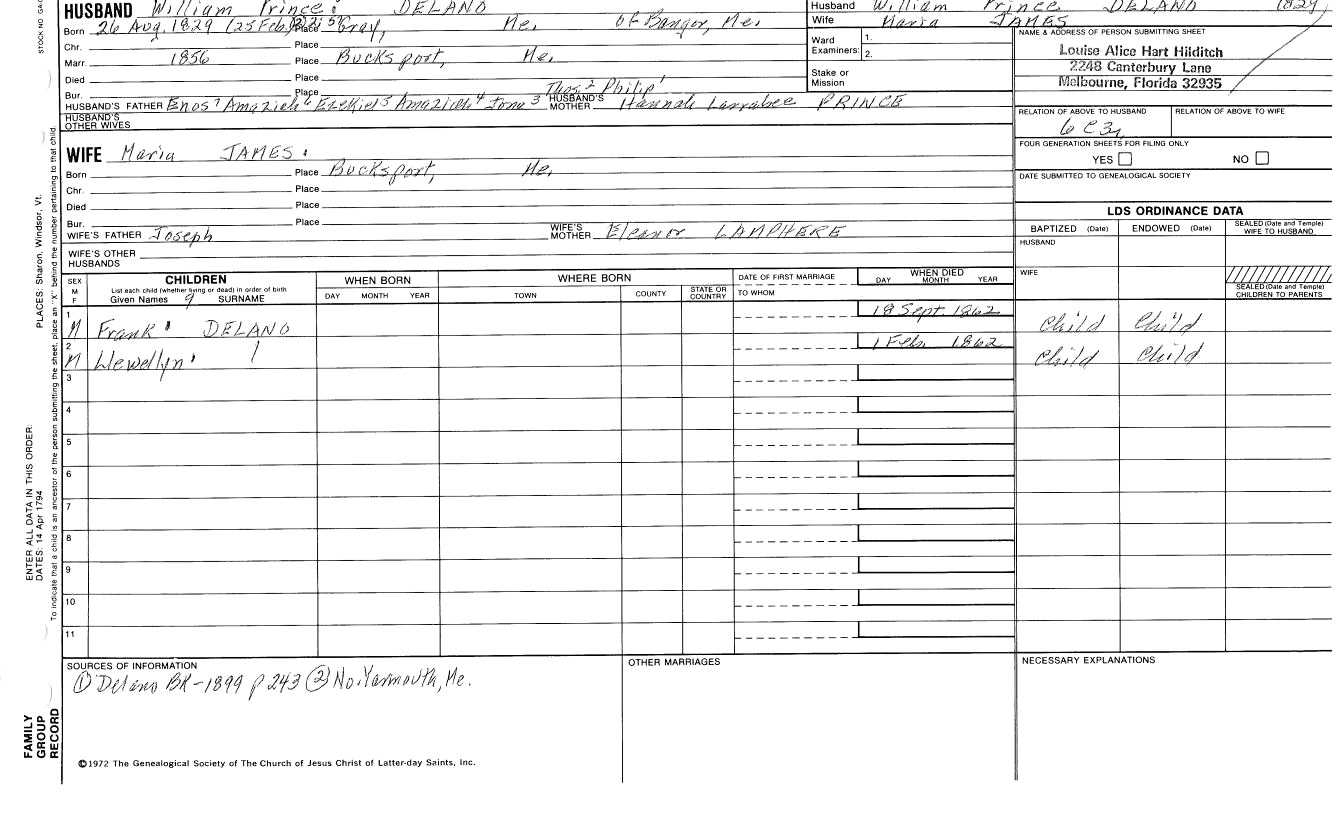 HUSBAND William Prince DELANO
Born 26 Aug. 1829 (25 Feb. Place Gray, Me. of Bangor, Me.
Chr. Place
Marr. 1856 Place Bucksport, Me.
Died Place
Bur. Place
Thos² Philip¹
HUSBAND'S FATHER Enos⁷ Amaziah⁶ Ezekiel⁵ Amaziah⁴ Jona³ HUSBAND'S MOTHER Hannah Larrabee PRINCE
HUSBAND'S OTHER WIVES
WIFE Maria JAMES
Born Place Bucksport, Me.
Chr. Place
Died Place
Bur. Place
WIFE'S FATHER Joseph WIFE'S MOTHER Eleanor LAMPHERE
WIFE'S OTHER HUSBANDS
Husband William Prince DELANO 1829
Wife Maria JAMES
Ward Examiners: 1.
2.
Stake or Mission
NAME & ADDRESS OF PERSON SUBMITTING SHEET
Louise Alice Hart Hilditch
2248 Canterbury Lane
Melbourne, Florida 32935
RELATION OF ABOVE TO HUSBAND RELATION OF ABOVE TO WIFE
6 C 3r
FOUR GENERATION SHEETS FOR FILING ONLY
YES NO
DATE SUBMITTED TO GENEALOGICAL SOCIETY
LDS ORDINANCE DATA
BAPTIZED (Date) ENDOWED (Date) SEALED (Date and Temple) WIFE TO HUSBAND
HUSBAND
WIFE
SEALED (Date and Temple) CHILDREN TO PARENTS
SEX M F CHILDREN WHEN BORN WHERE BORN DATE OF FIRST MARRIAGE WHEN DIED
List each child (whether living or dead) in order of birth DAY MONTH YEAR
Given Names 9 SURNAME DAY MONTH YEAR TOWN COUNTY STATE OR COUNTRY TO WHOM
1 M Frank DELANO 18 Sept. 1862 Child Child
2 M Llewellyn 1 Feb. 1862 Child Child
3
4
5
6
7
8
9
10
11
SOURCES OF INFORMATION
① Delano BK-1899 p 243 ② No. Yarmouth, Me.
OTHER MARRIAGES
NECESSARY EXPLANATIONS
©1972 The Genealogical Society of The Church of Jesus Christ of Latter-day Saints, Inc.
FAMILY
GROUP
RECORD
ENTER ALL DATA IN THIS ORDER:
DATES: 14 Apr 1794
PLACES: Sharon, Windsor, Vt.
To indicate that a child is an ancestor of the person submitting the sheet, place an "X" behind the number pertaining to that child.
STOCK NO. GAO